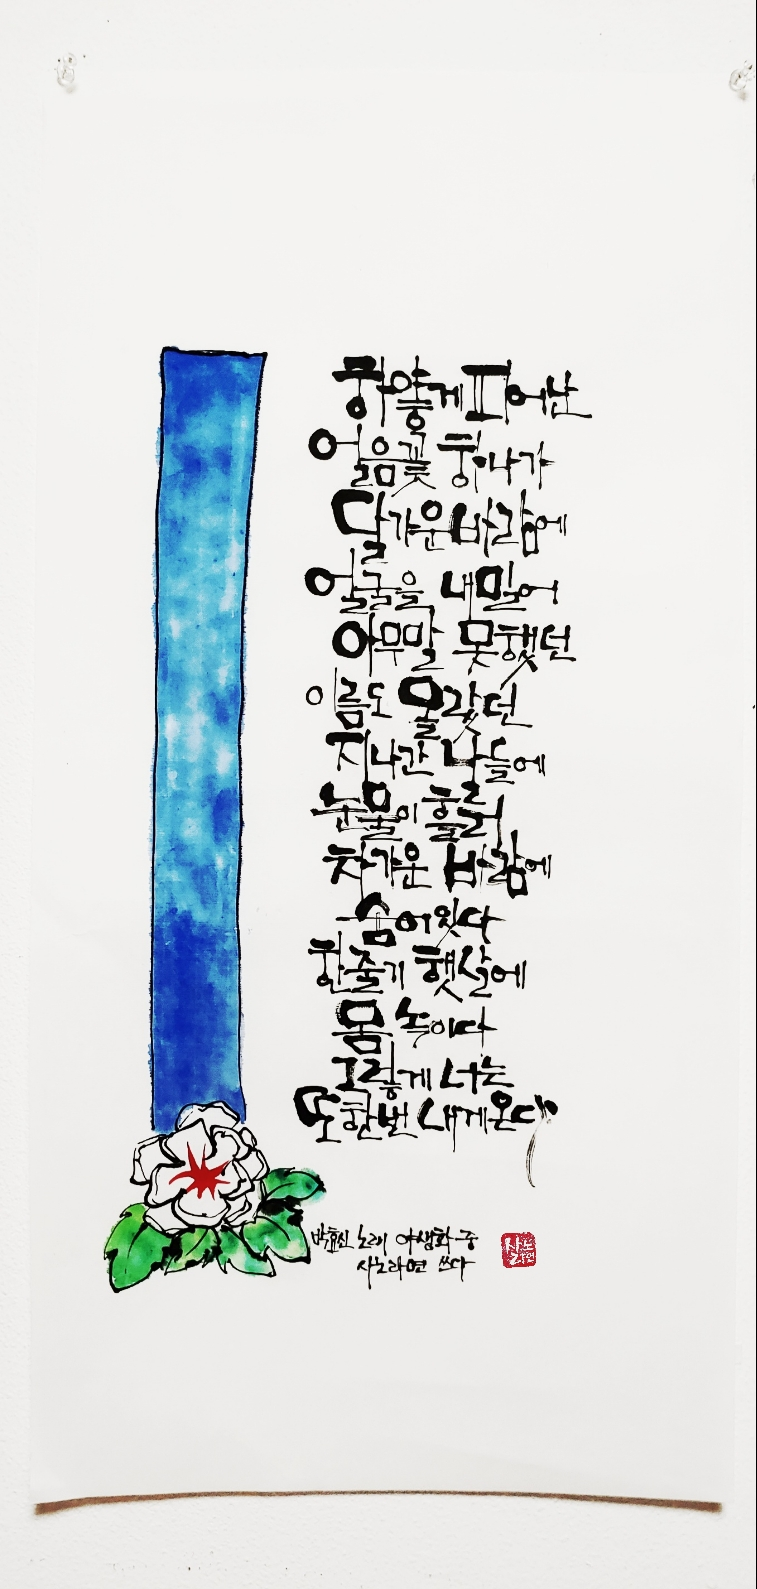 하얗게 피어난
얼음꽃 하나가
달가운 바람에
얼굴을 내밀어
아무말 못했던
이름도 몰랐던
지나간 날들에
눈물이 흘러
차가운 바람에
숨어 있다
한줄기 햇살에
몸 녹이다
그렇게 너는
또 한번 내게 온다
박효신 노래 야생화 중
사노라면 쓰다
사노라면